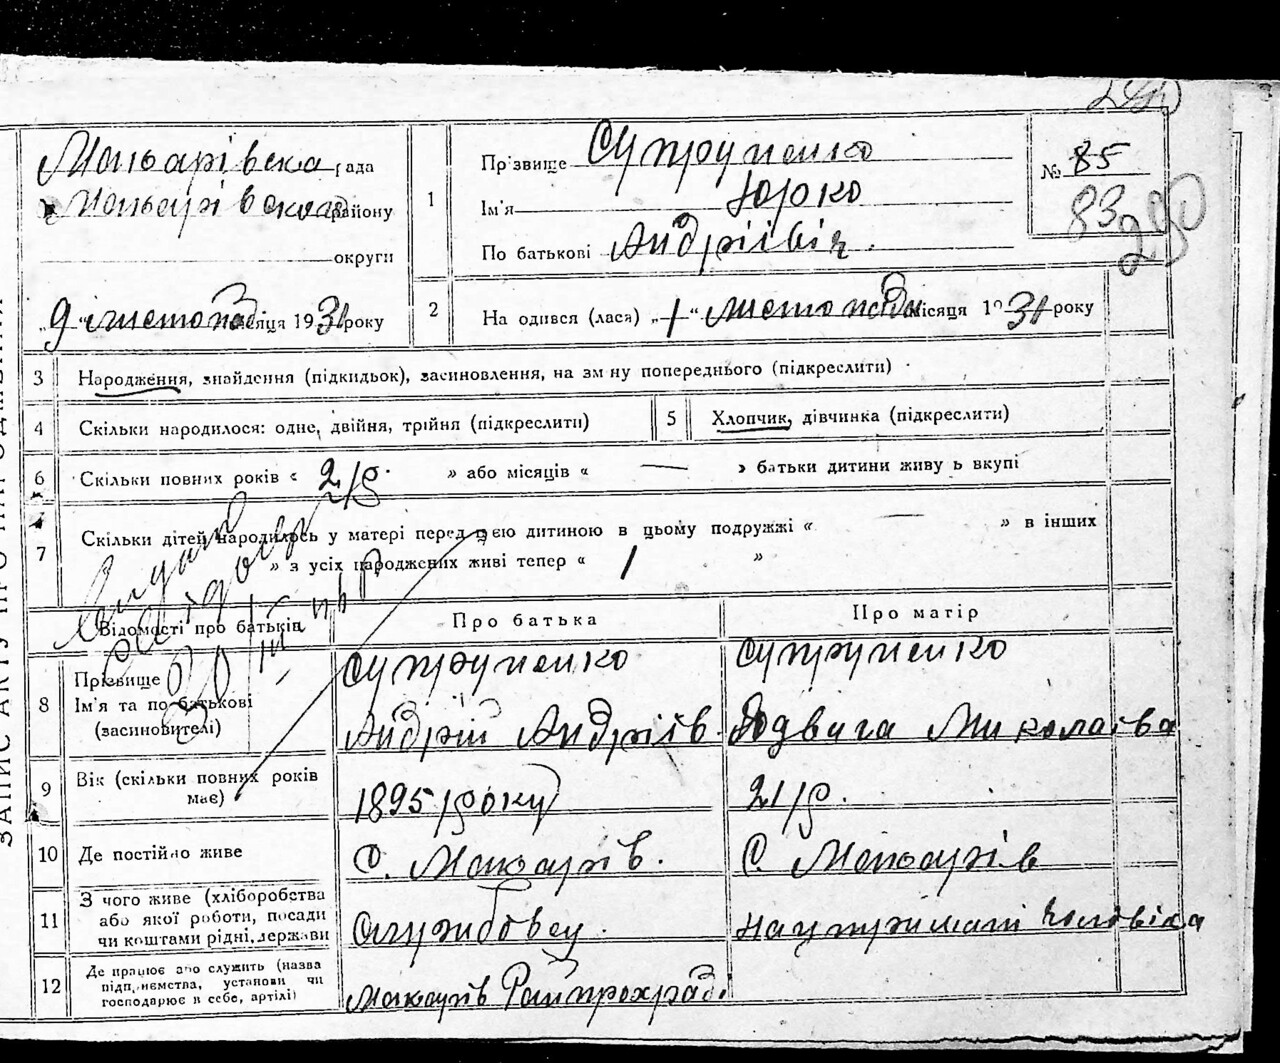 Макарівська рада
Макарівського району
округи
„9“ листопад місяця 1931 року
1
Пр'звище Супруненко
Ім'я Юрко
По батькові Андрійвіч.
№ 85
83
290
2
На одився (лася) „1“ листопада місяця 1931 року
3 Народження, знайдення (підкидьок), засиновлення, на зм ну попереднього (підкреслити)
4 Скільки народилося: одне, двійня, трійня (підкреслити)
5 Хлопчик, дівчинка (підкреслити)
6 Скільки повних років « 2/р. » або місяців « — » батьки дитини живу ь вкупі
7 Скільки дітей народилось у матері перед цією дитиною в цьому подружжі « — » в інших
» з усіх народжених живі тепер « 1 »
Відомості про батьків
Про батька
Про матір
8
Прізвище
Ім'я та по батькові
(засиновителі)
Супруненко
Андрій Андріїв.
Супруненко
Ядвига Миколаївна
9
Вік (скільки повних років
має)
1895 /року
21/р.
10 Де постійно живе
С. Макарів.
С. Макарів
11
З чого живе (хліборобства
або якої роботи, посади
чи коштами рідні, держави
Службовец.
на утриманні Чоловіка
12
Де працює або служить (назва
підп,иємства, установи чи
господарює в себе, артілі)
Макарів
ЗАПИС АКТУ ПРО НАРОДЖЕННЯ